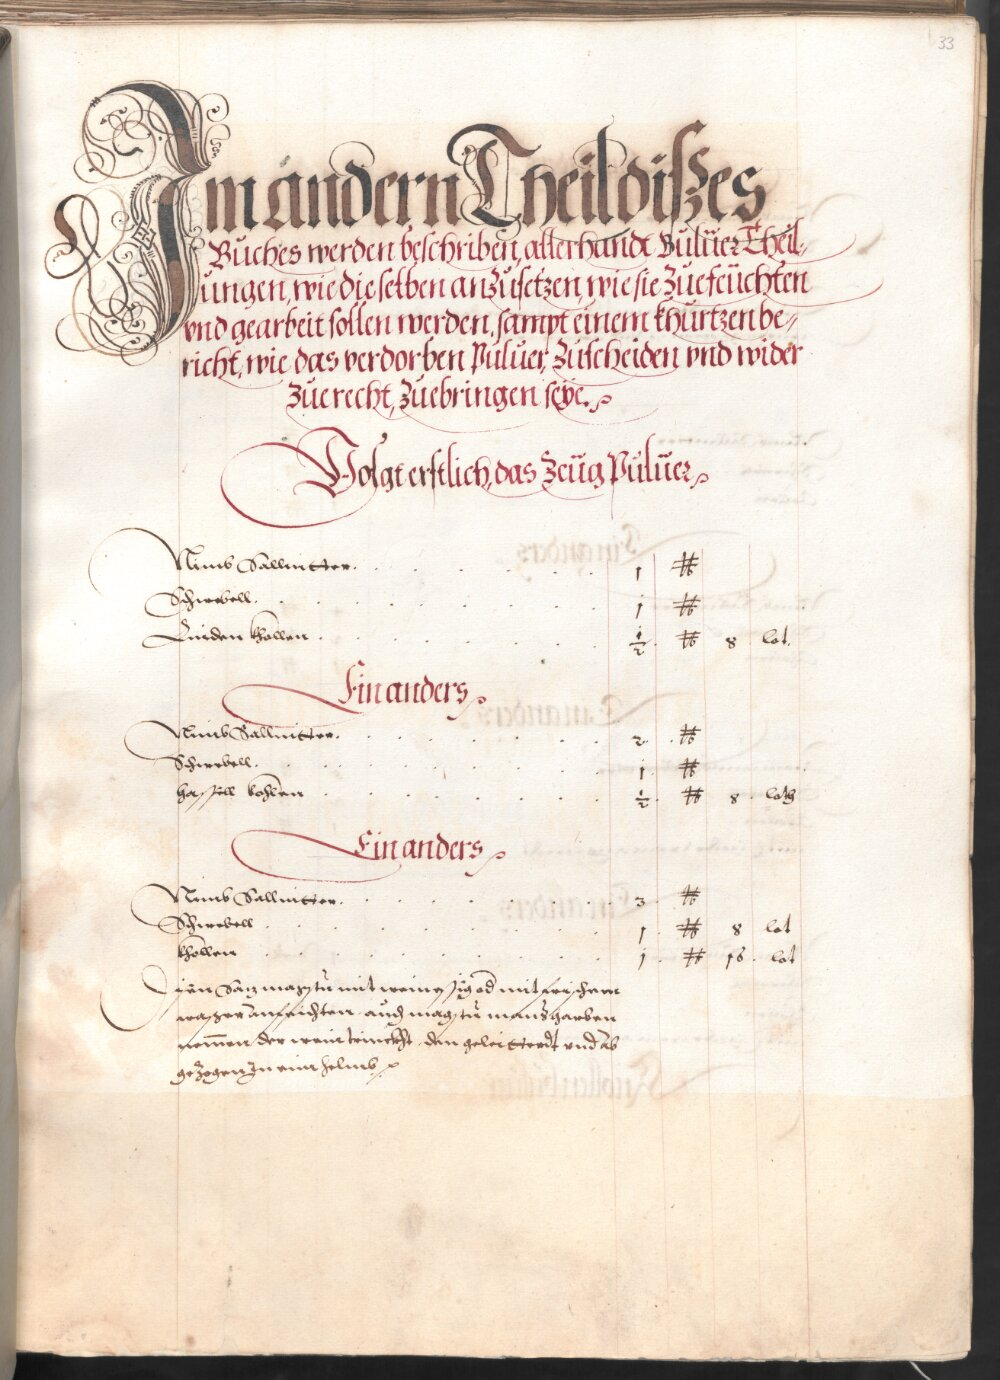 33
Im andern Theil dißes
Buches werden beschriben, allerhandt Puluer Theil-
ungen, wie die selben anzusetzen, wie sie zue feüchten
vnd gearbeit sollen werden, sampt einem khurtzen be-
richt, wie das verdorben Puluer, zuscheiden vnd wider
zue recht, zuebringen seye.
Volgt erstlich, das Zeüg Puluer
Nimb Sallnitter . 1 ℔
Schwebell . 1 ℔
Linden khollen . ½ ℔ 8 lot
Ein anders
Nimb Sallnitter . 2 ℔
Schwebell . 1 ℔
hassell kohlen . ½ ℔ 8 loth
Ein anders
Nimb Sallnitter . 3 ℔
Schwebell . 1 ℔ 8 lot
khollen . 1 ℔ 16 lot
Satz magstu mit wein essig od mit frischem
wasser anfeichten auch magstu manß harben
nemmen der wein trinckht, den geleittert vnd ab
gezogen in ein helmb